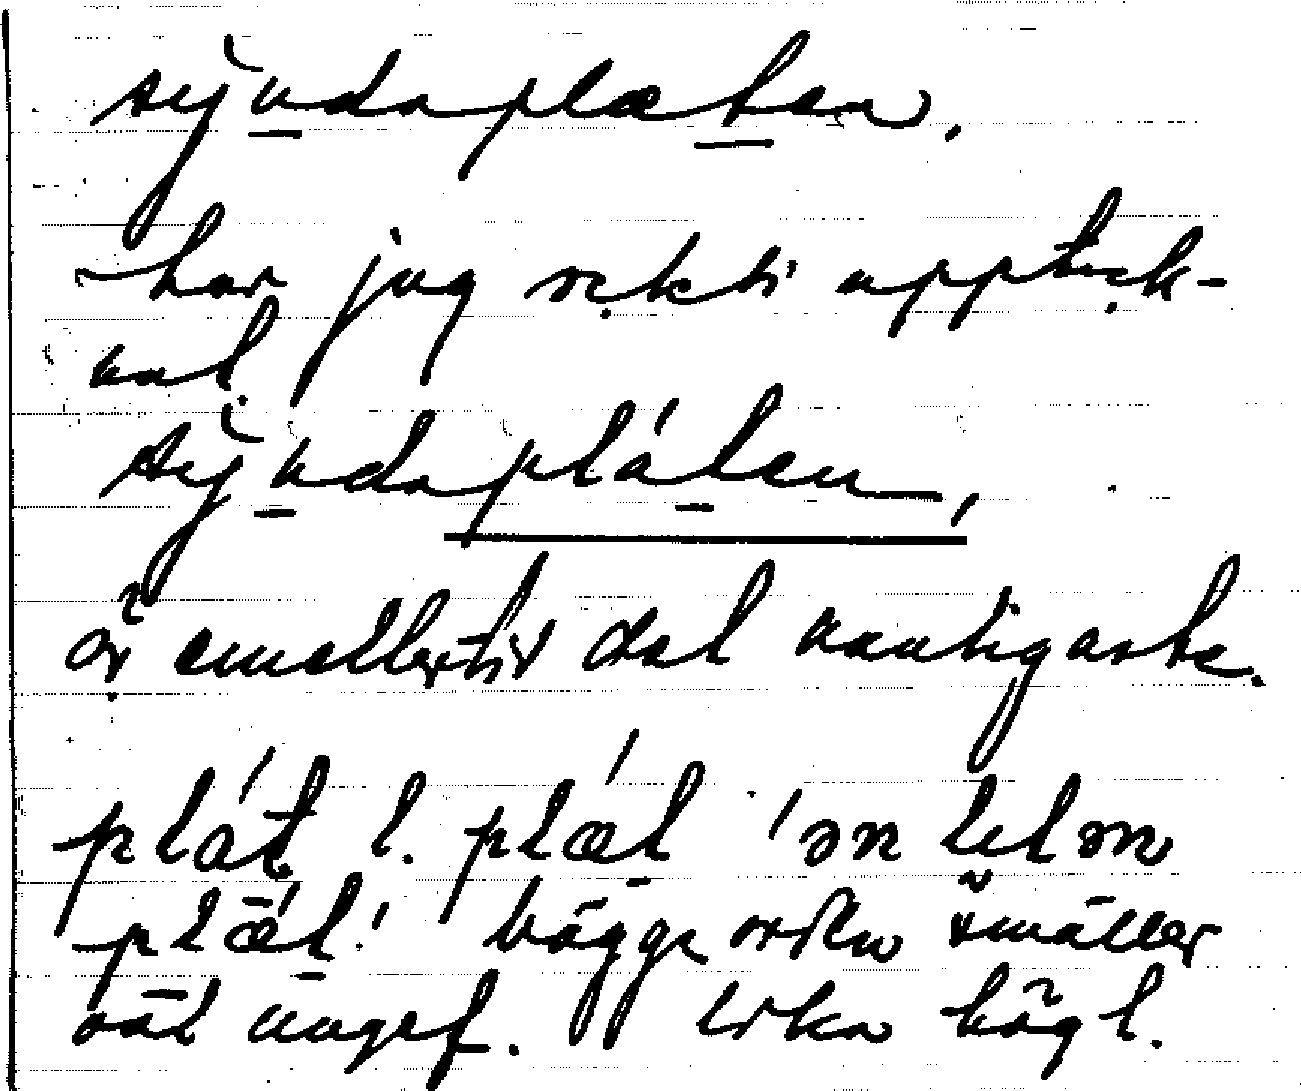 syndaplæten,
har jag också uppteck-
nat.
syndapláten,
är emellertid det vanligaste.
plát l. plæt
plæt' bägge orden smäller
väl ungef. lika högt.